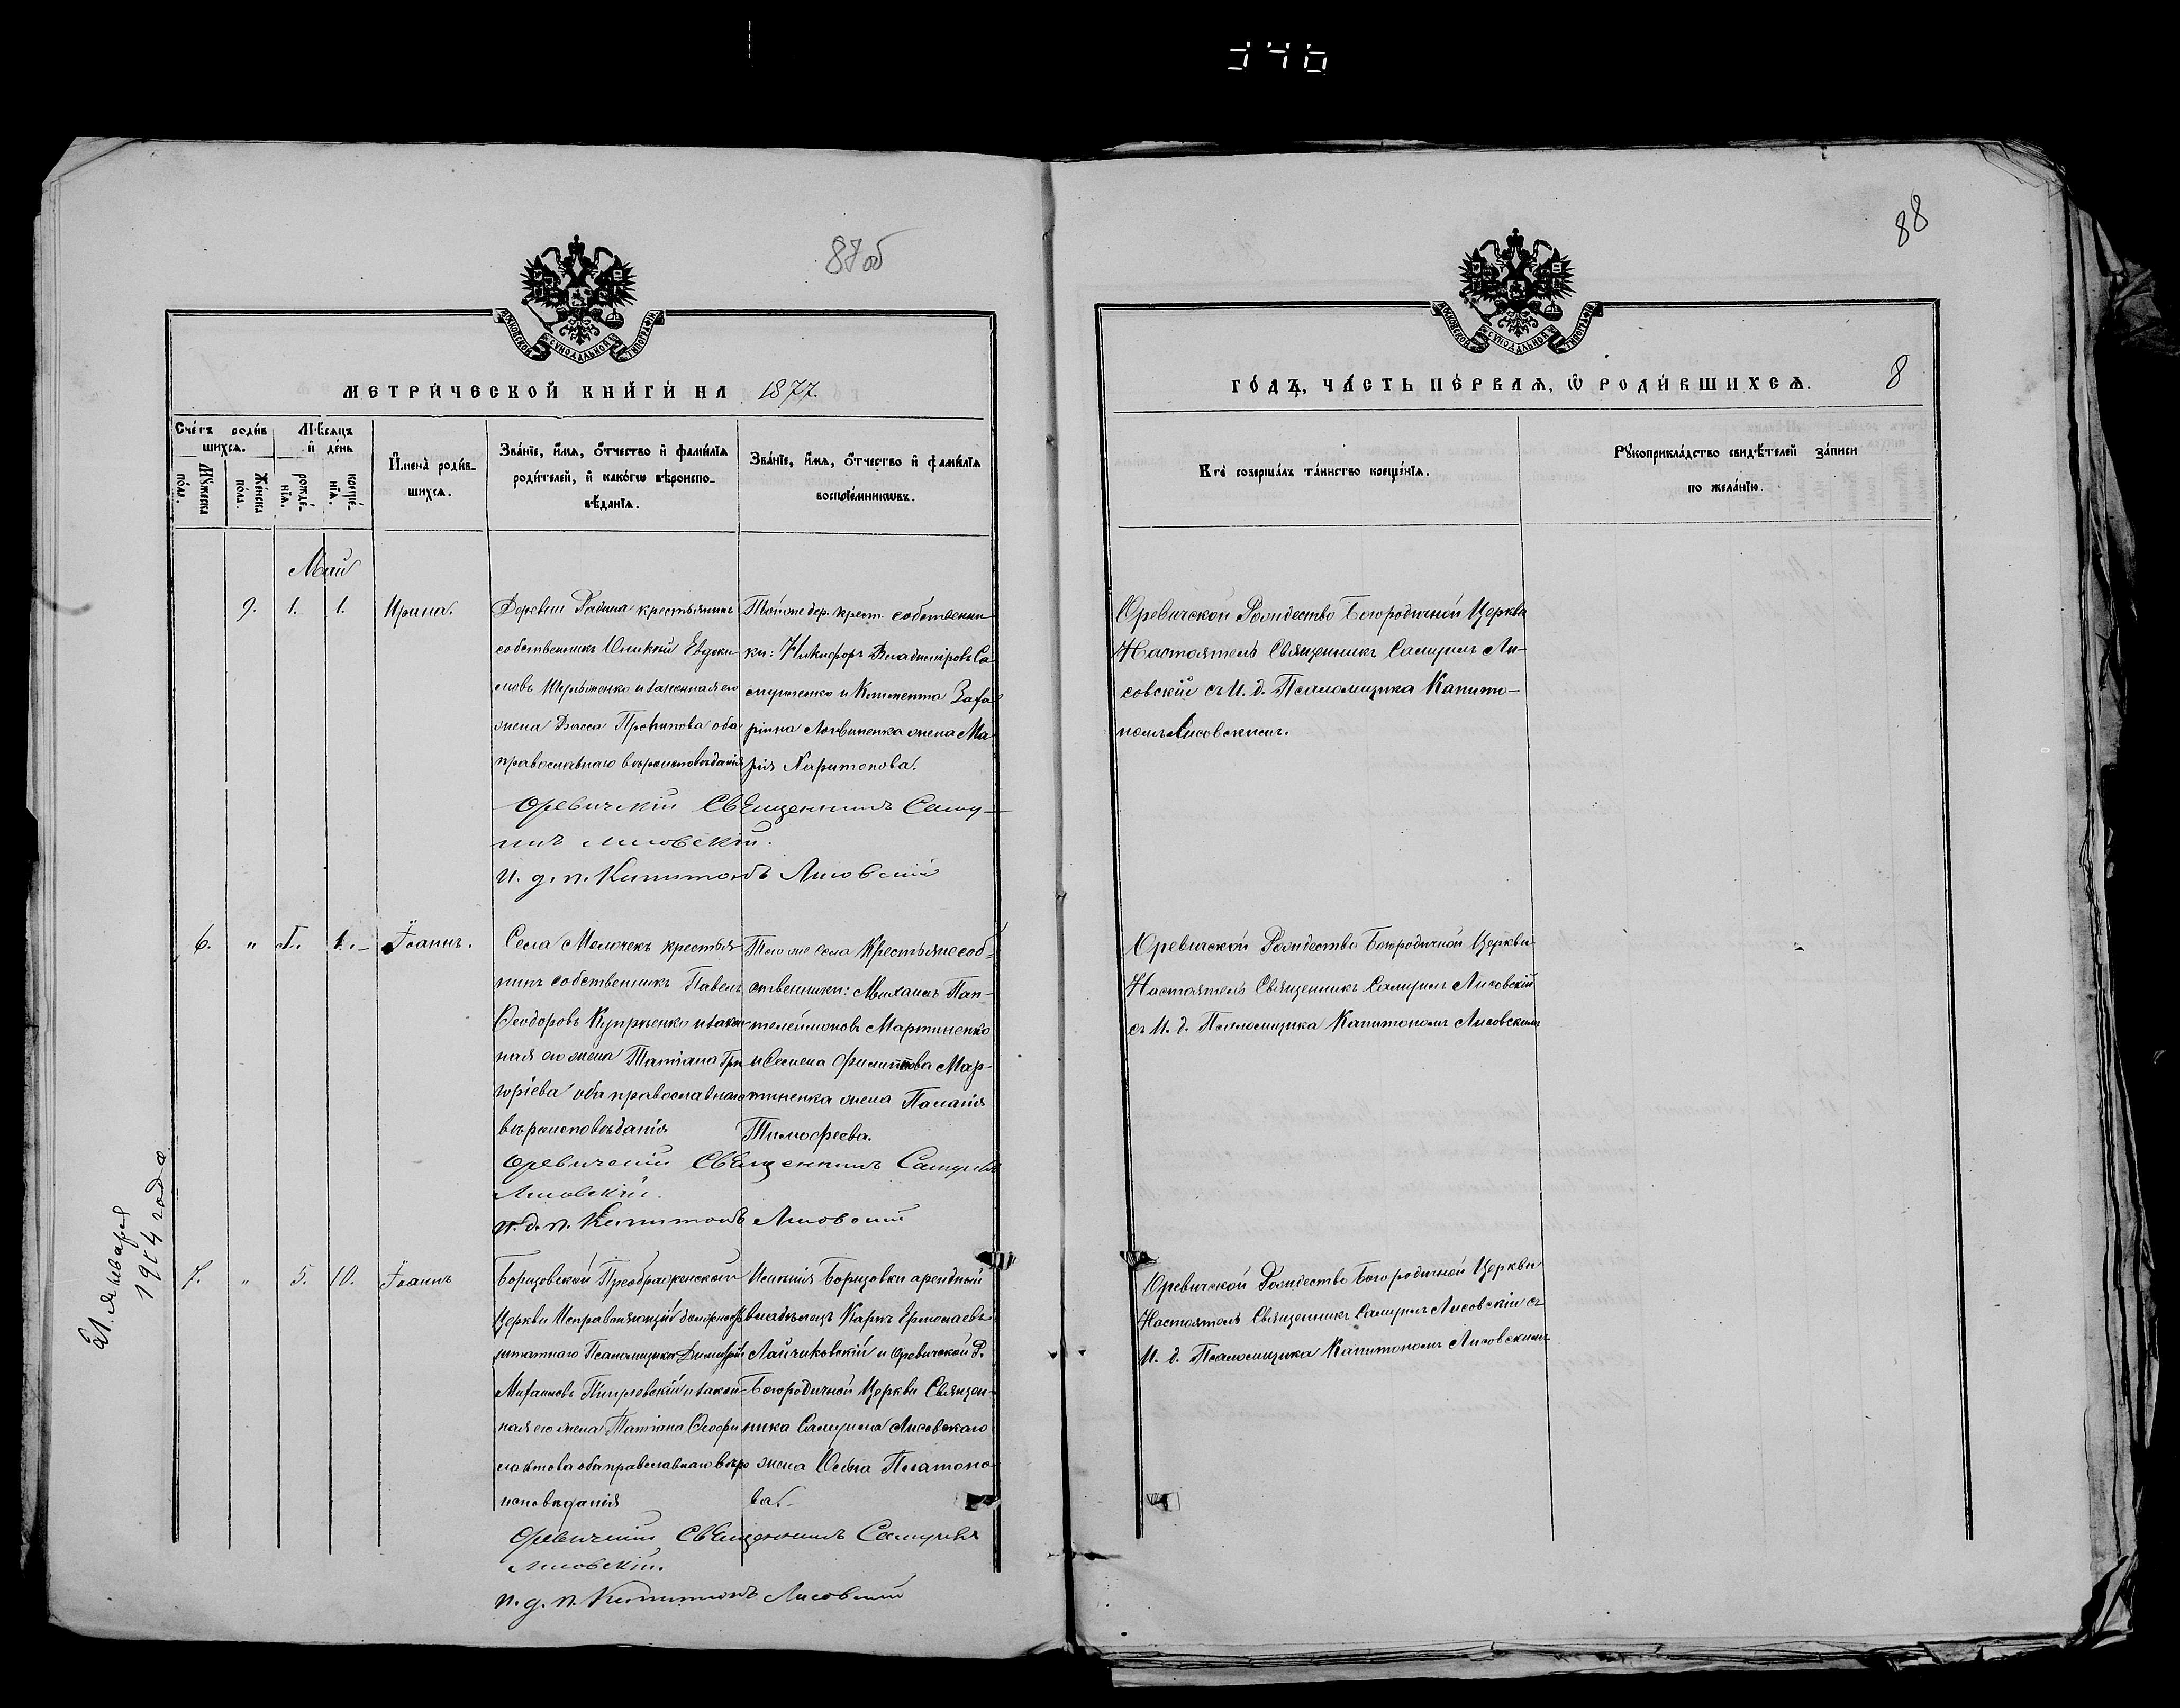 346
87об
МОСКОВСКОЙ СУНОДАЛЬНОЙ ТИПОГРАФІИ
МЕТРИ́ЧЕСКОЙ КНИ́ГИ НА 1877.
Сче́тъ роди́в
шихсѧ.
Мꙋ́жеска
по́ла.
Же́нска
по́ла.
Мѣ́сѧцъ
и҆ де́нь
рожде́-
нїѧ.
креще́-
нїѧ.
И҆мена̀ роди́в-
шихсѧ.
Зва́нїе, и҆́мѧ, ѻ҆́тчество и҆ фами́лїѧ
роди́телей, и҆ како́гѡ вѣроиспо-
вѣ́данїѧ.
Зва́нїе, и҆́мѧ, ѻ҆́тчество и҆ фами́лїѧ
воспрїе́мникѡвъ.
Май
9. 1. 1. Ирина.
Деревни Радина крестьянинъ
собственникъ Евдоки-
мовъ и законная его
жена Васса Прокопова оба
православнаго вѣроисповѣданія
Той же дер. крест. собственни
ки: Никифоръ Владиміровъ Са
мущенко и Климента Заха
ріина Логвиненка жена Ма
рія Харитонова.
Оревичскій Священникъ Саму-
илъ Лисовскій.
И. д. п. Капитонъ Лисовскій
6. " 1. 1. Іоаннъ.
Села Мелочекъ крестья
нинъ собственникъ Павелъ
Ѳеодоровъ Купріенко и закон
ная его жена Татіана Гри
горіева оба православнаго
вѣроисповѣданія
Того же села Крестьяне соб-
ственники: Михаилъ Пан-
телеймоновъ Мартиненко
и Семена Филиппова Мар-
тиненка жена Паланія
Тимофеева.
Оревичскій Священникъ Самуилъ
Лисовскій.
И. д. п. Капитонъ Лисовскій
21. Января
1904 года
7. " 5. 10. Іоаннъ
Борщовской Преображенской
Церкви Исправляющій должность
штатнаго Псаломщика Димитрій
Михаиловъ и закон-
ная его жена Татіана Ѳеофи
лактова оба православнаго вѣро
исповѣданія
Имѣнія Борщовки арендный
владѣлецъ Карпъ Ермолаевъ
Лайчиковскій и Оревичской Р.
Богородичной Церкви Священ-
ника Самуила Лисовскаго
жена Юлія Платоно
ва.
Оревичскій Священникъ Самуилъ
Лисовскій.
И. д. п. Капитонъ Лисовскій
88
МОСКОВСКОЙ СУНОДАЛЬНОЙ ТИПОГРАФІИ
ГО́ДЪ, ЧА́СТЬ ПЕ́РВАѦ, Ѽ РОДИ́ВШИХСѦ. 8
Кто̀ соверша́лъ та́инство креще́нїѧ.
Рꙋкоприкла́дство свидѣ́телей за́писи
по жела́нїю.
Оревичской Рождество Богородичной Церкви
Настоятель Священникъ Самуилъ Ли-
совскій съ И. д. Псаломщика Капито-
номъ Лисовскимъ.
Оревичской Рождество Богородичной Церкви
Настоятель Священникъ Самуилъ Лисовскій
съ И. д. Псаломщика Капитономъ Лисовскимъ
Оревичской Рождество Богородичной Церкви
Настоятель Священникъ Самуилъ Лисовскій съ
И. д. Псаломщика Капитономъ Лисовскимъ